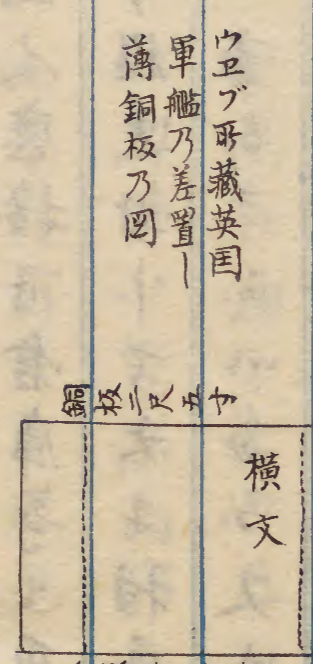 ウヱブ所藏英国
軍艦乃差置し
薄銅板乃図
銅板二尺五寸
横文